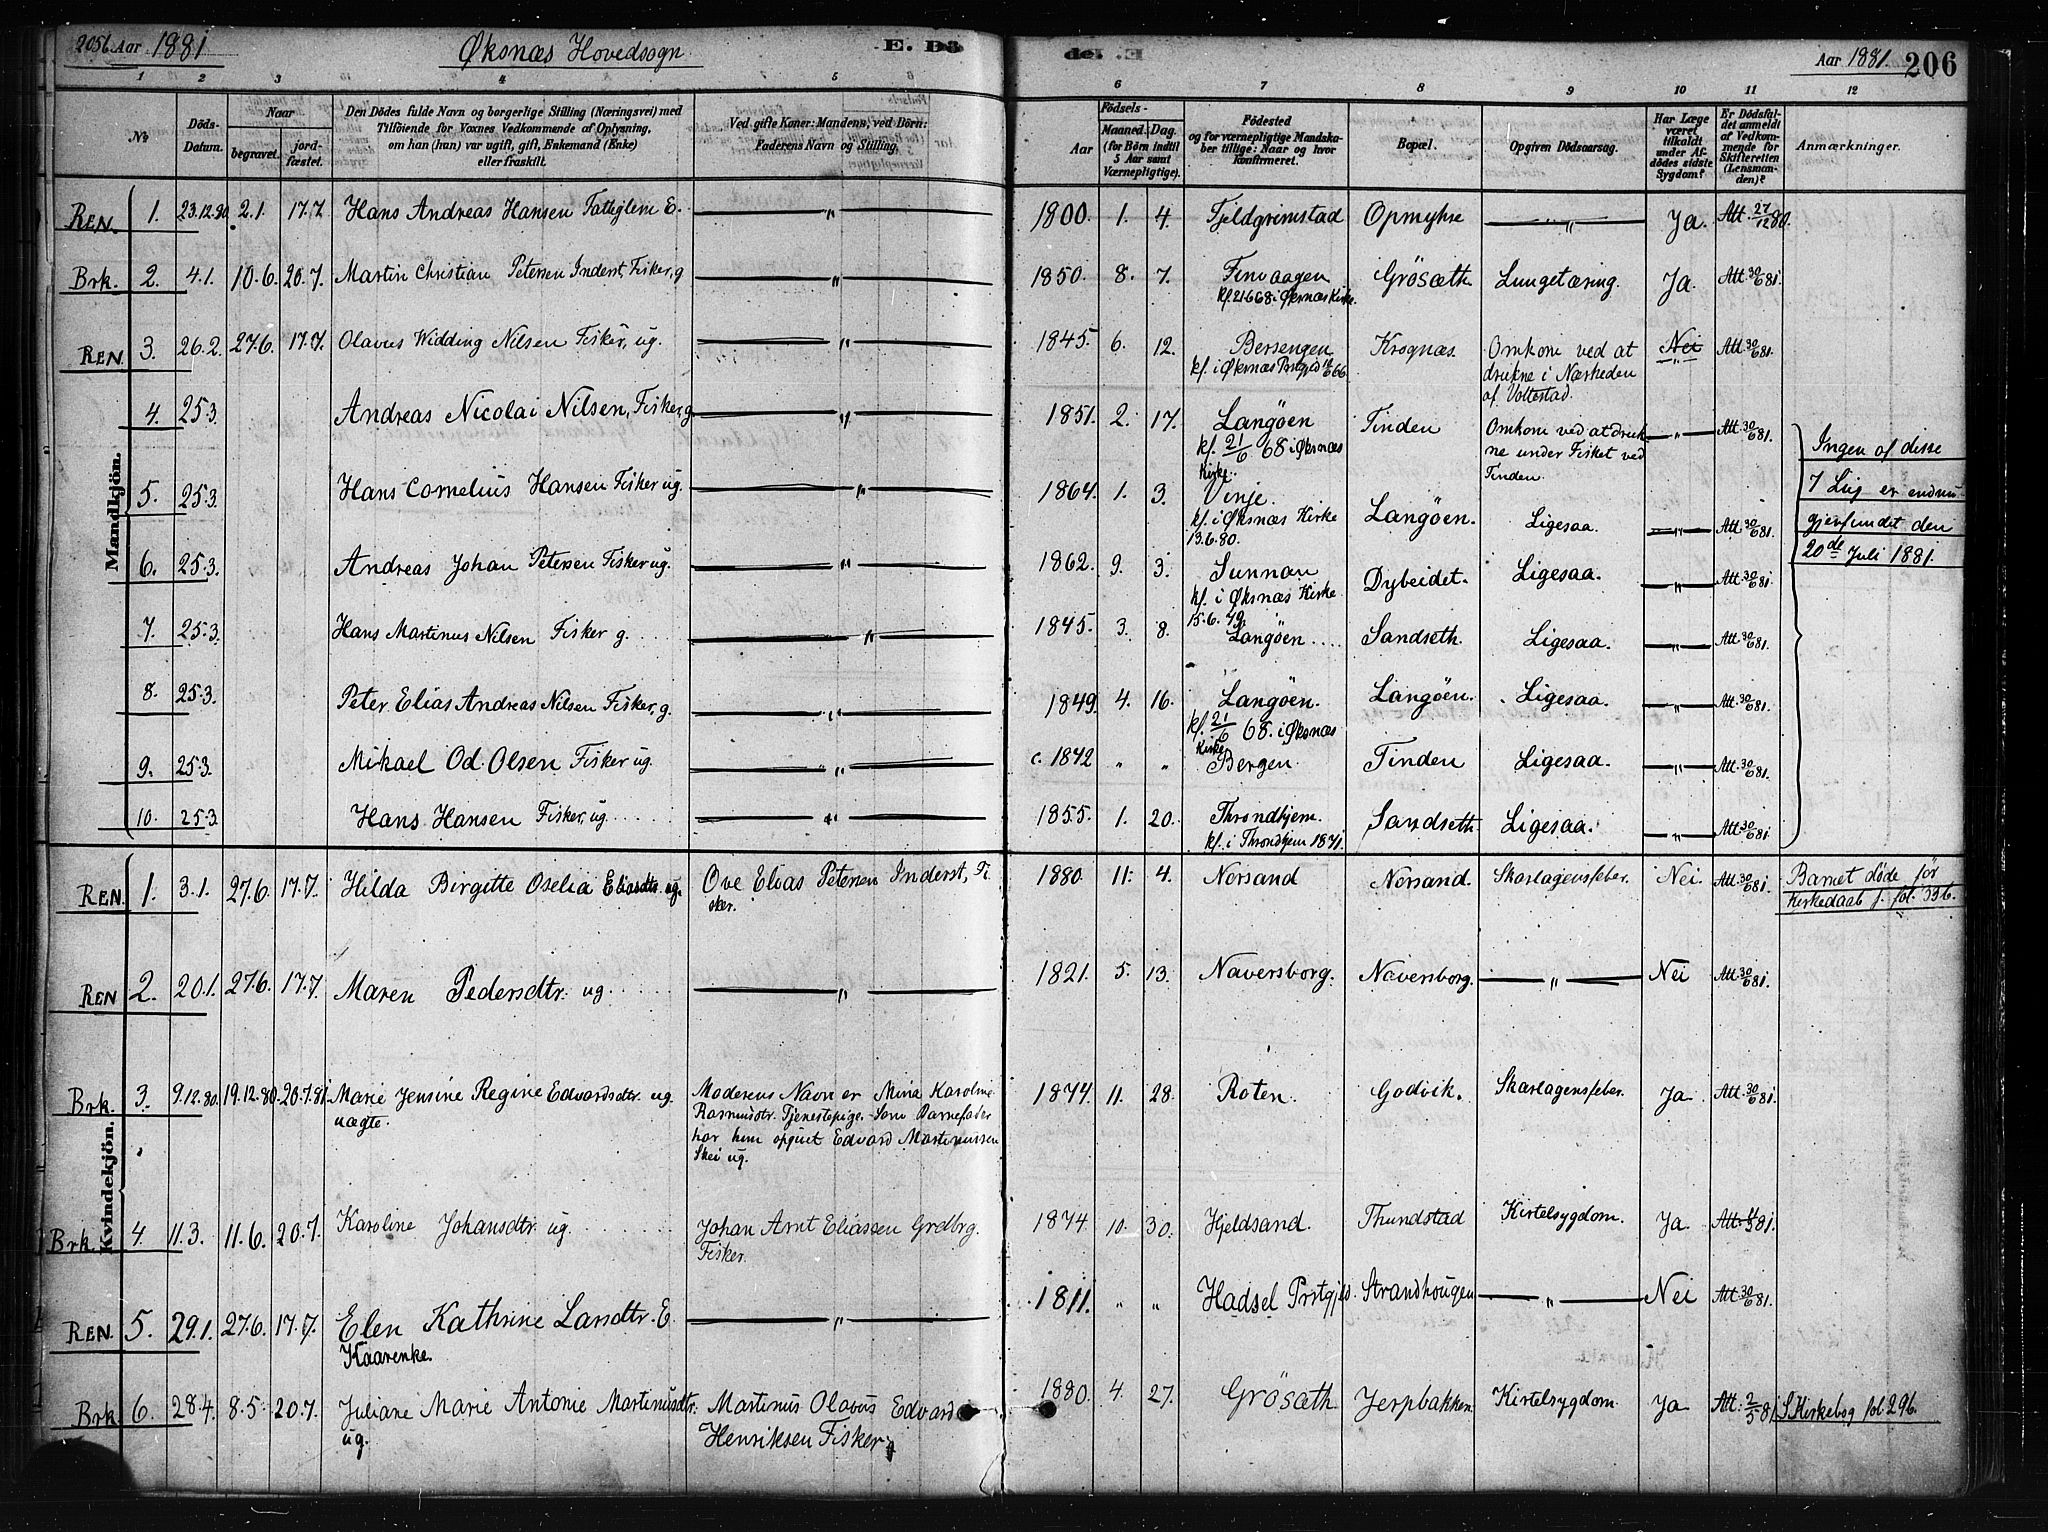 2056. Aar 1881 Øksnæs Hovedsogn E. Dø
de. E Aar 1881. 206
1 2 3 4 5 6 7 8 9 10 11 12
№ Døds-Datum. Naar begravet. jord-fæstet. Den Dödes fulde Navn og borgerlige Stilling (Næringsvei) med
Tilföiende for Voxnes Vedkommende af Oplysning,
om han (hun) var ugift, gift, Enkemand (Enke)
eller fraskilt.
Ved gifte Koner: Mandens, ved Börn:
Faderens Navn og Stilling.
Födsels-
Aar Maaned. Dag.
(for Börn indtil
5 Aar samt
Værnepligtige).
Födested
og for værnepligtige Mandska-
ber tillige: Naar og hvor
konfirmeret.
Bopæl.
Opgiven Dödsaarsag.
Har Læge
været
tilkaldt
under Af-
dödes sidste
Sygdom?
Er Dödsfal-
det anmeldt
af Vedkom-
mende for
Skifteretten
(Lensman-
den)?
Anmærkninger.
Mandkjön.
REN. 1. 23.12.80 2.1. 17.7 Hans Andreas Hansen Fattiglem E. „ 1800. 1. 4. Fjeldgrimstad Opmyhre „ Ja. Att. 27/12 80.
Brk. 2. 4.1. 10.6. 20.7. Martin Christian Petersen Inderst, Fisker, g „ 1850. 8. 7. Finvaagen Grösæth Lungetæring. Ja Att. 30/6 81.
kf. 21 6 68. i Øksnæs Kirke.
REN 3. 26.2. 27.6. 17.7. Olavus Widding Nilsen Fisker, ug. „ 1845. 6. 12. Bersengen Krognæs. Omkom ved at Nei „ Att. 30/6 81.
kf. i Øksnæs Prstgjld 66 drukne i Nærheden
af Vottestad.
4. 25.3. Andreas Nicolai Nilsen, Fisker, g „ 1851. 2. 17. Langöen Tinden Omkom ved at druk- „ Att. 30/6 81.
kf. 21/6 68 i Øksnæs ne under Fisket ved
Kirke. Tinden.
Ingen af disse
7 Lig er endnu
gjenfundet den
20de Juli 1881.
5. 25.3. Hans Cornelius Hansen Fisker ug. „ 1864. 1. 3. Vinje Langöen. Ligesaa. „ Att. 30/6 81.
kf. i Øksnæs Kirke
13.6.80.
6. 25.3. Andreas Johan Petersen Fisker ug. „ 1862. 9. 3. Sunnan Dybeidet. Ligesaa. „ Att. 30/6 81.
kf. i Øksnæs Kirke
15.6.79.
7. 25.3. Hans Martinus Nilsen Fisker g. „ 1845. 3. 8. Langöen Sandseth. Ligesaa. „ Att. 30/6 81.
8. 25.3. Peter Elias Andreas Nilsen Fisker, g. „ 1849. 4. 16. Langöen. Langöen. Ligesaa. „ Att. 30/6 81.
kf. 21/6 68. i Øksnæs
Kirke
9. 25.3. Mikael Od. Olsen Fisker ug. „ c. 1842 „ „ Bergen. Tinden Ligesaa. „ Att. 30/6 81.
10. 25.3. Hans Hansen Fisker, ug. „ 1855. 1. 20. Throndhjem. Sandseth Ligesaa. „ Att. 30/6 81.
kf. i Throndhjem 1871.
Kvindekjön.
REN. 1. 3.1. 27.6. 17.7. Hilda Birgitte Oselia Eliasdtr. ug. Ove Elias Petersen Inderst, Fi- 1880. 11. 4. Norsand Norsand. Skarlagensfeber. Nei. Att. 30/6 81. Barnet døde før
sker. Kirkedaab f. fol. 336.
REN 2. 20.1. 27.6. 17.7. Maren Pedersdtr. ug. „ 1821. 5. 13. Naversborg. Naversborg. „ Nei Att. 30/6 81.
Brk. 3. 9.12.80. 19.12.80. 20.7.81. Marie Jensine Regine Edvardsdtr. ug. Moderens Navn er Mina Karoline 1874. 11. 28. Roten Godvik. Skarlagensfeber. Ja Att. 30/6 81.
uægte. Rasmusdtr. Tjenestepige. Som Barnefader
har hun opgivet Edvard Martinussen
Skei ug.
Brk. 4 11.3. 11.6. 20.7. Karoline Johansdtr. ug. Johan Arnt Eliassen Grdbrg. 1874 10. 30. Hjeldsand. Thundstad Kirtelsygdom. Ja Att. 81.
Fisker.
REN. 5. 29.1. 27.6. 17.7. Elen Kathrine Larsdtr. E „ 1811. „ „ Hadsel Prstgjld. Strandhougen „ Nei Att. 30/6 81.
Kaarenke.
Brk. 6. 28.4. 8.5. 20.7. Juliane Marie Antonie Martinusdtr. Martinus Olavus Edvard 1880. 4. 27. Grösæth Jerpbakken Kirtelsygdom Ja Att. 2/5 81 S. Kirkebog fol 296.
ug. Henriksen Fisker g